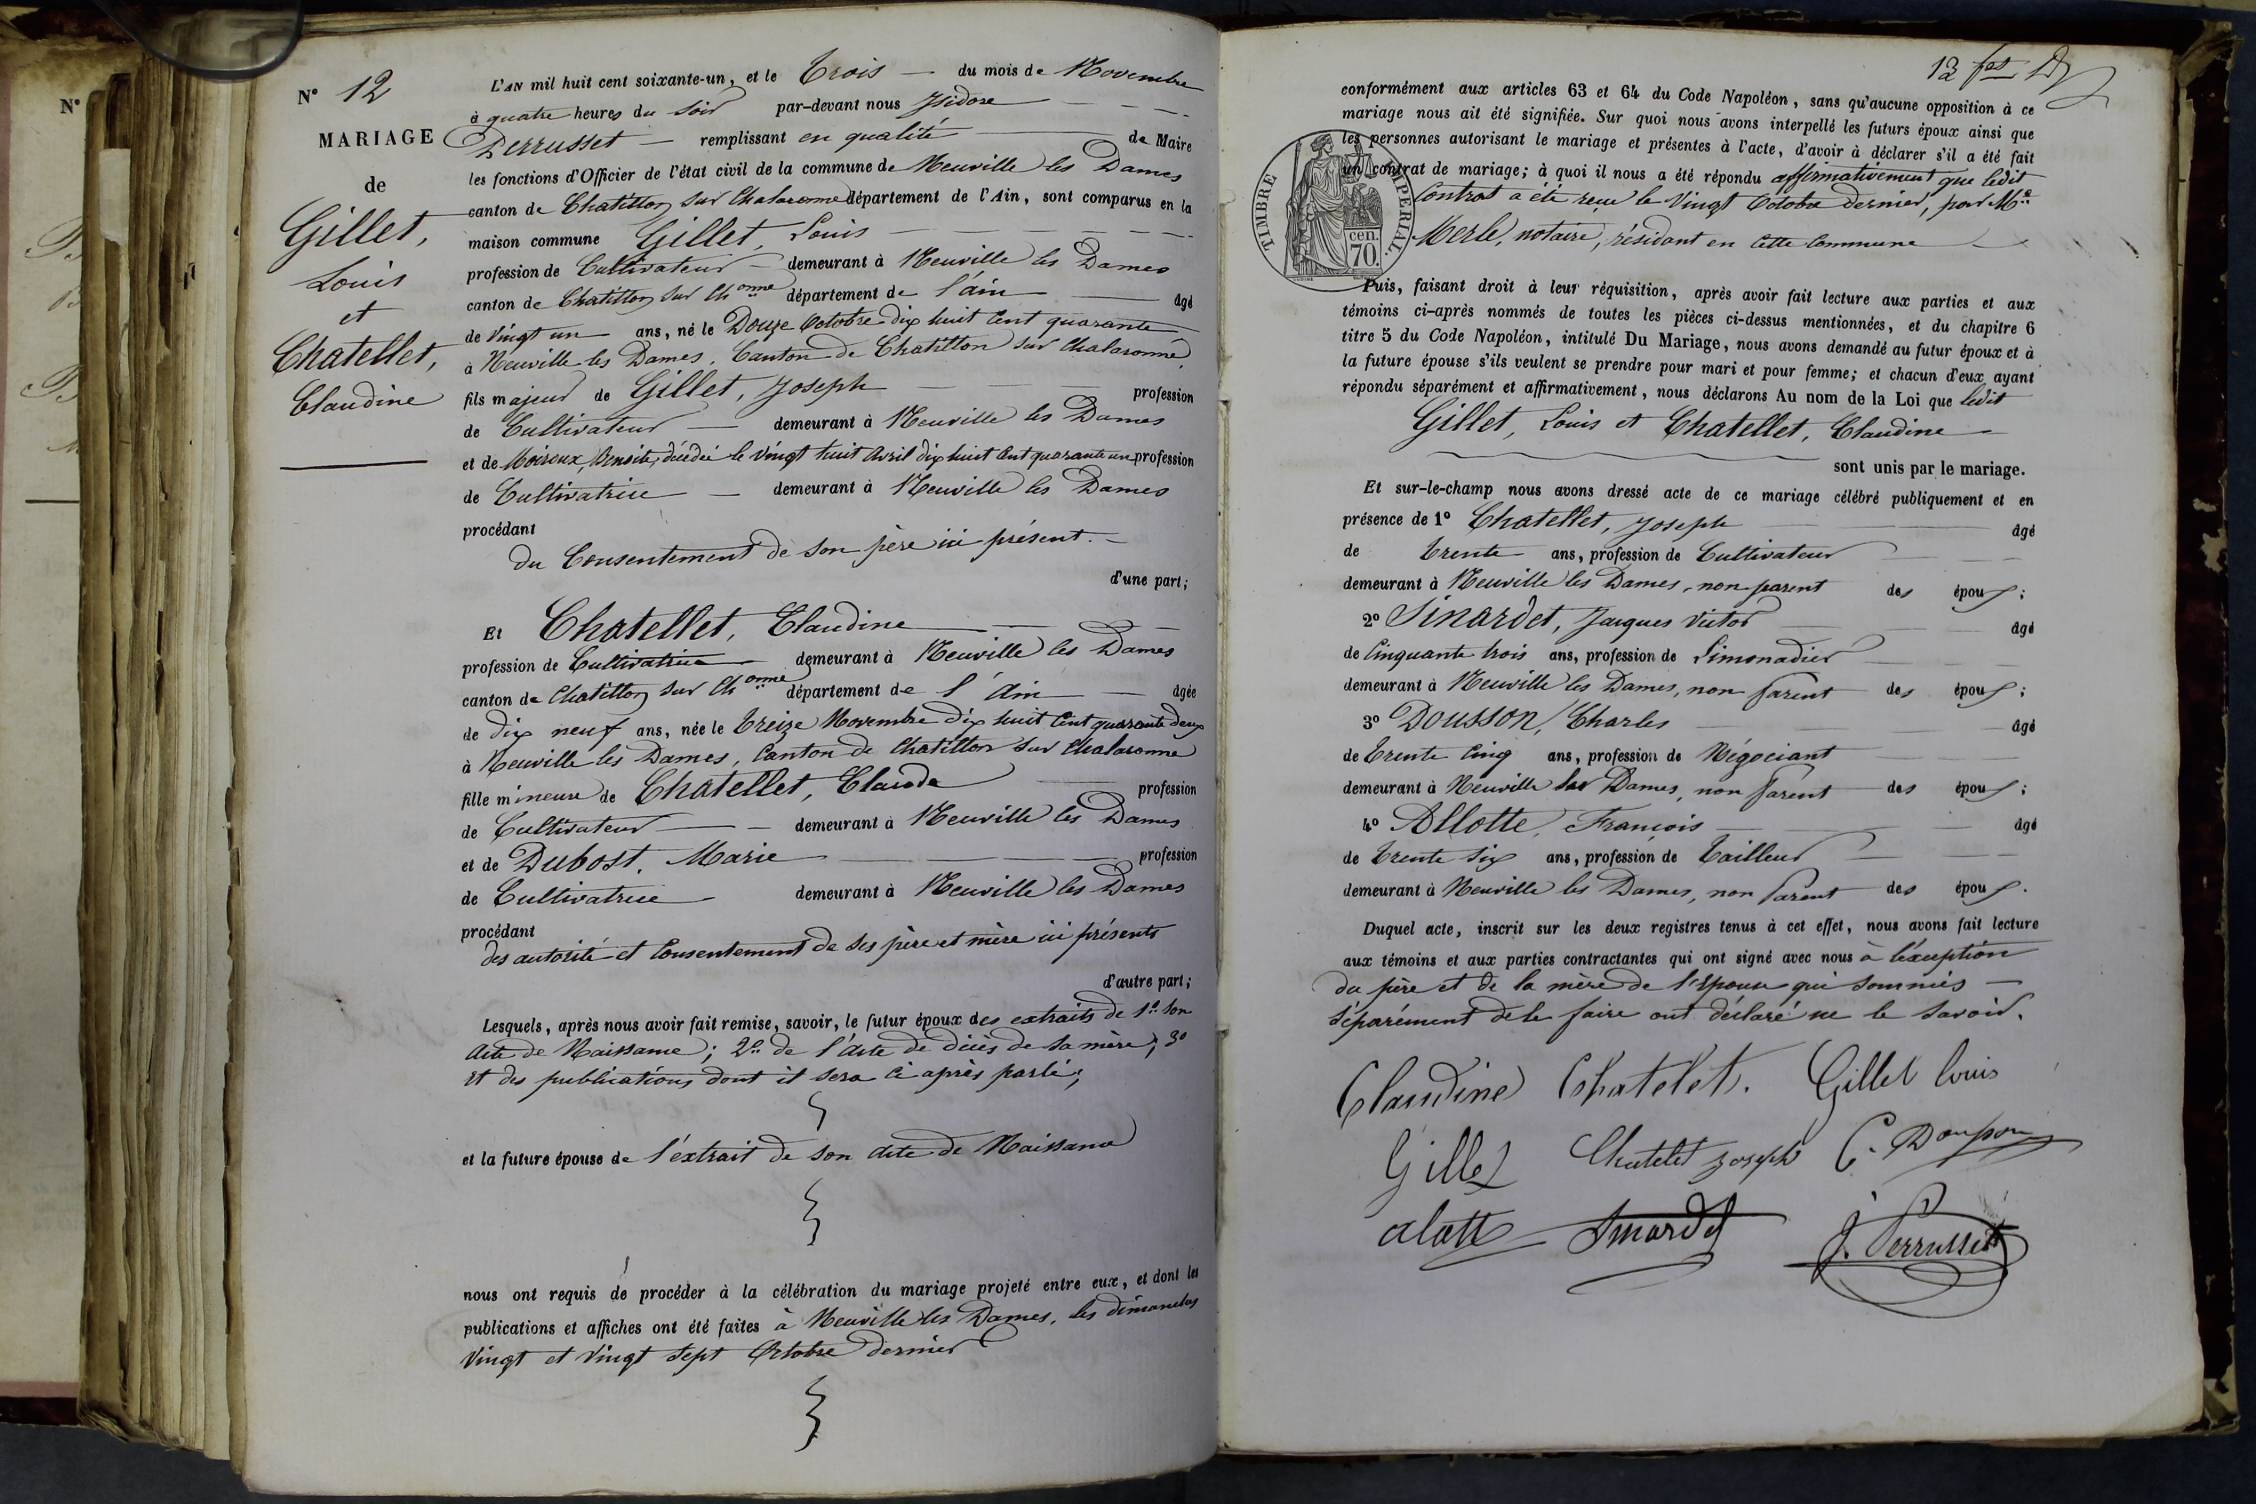 N°
N° 12
MARIAGE
de
Gillet,
Louis
et
Chatellet,
Claudine
L'AN mil huit cent soixante-un, et le Trois — du mois de Novembre
à quatre heures du soir par-devant nous Isidore
Perrusset — remplissant en qualité de Maire
les fonctions d'Officier de l'état civil de la commune de Neuville les Dames
canton de Chatillon sur Chalaronne département de l'Ain, sont comparus en la
maison commune Gillet, Louis
profession de Cultivateur — demeurant à Neuville les Dames
canton de Chatillon sur Ch onne département de l'ain — âgé
de vingt un ans, né le Douze Octobre dix huit Cent quarante
à Neuville les Dames, Canton de Chatillon sur Chalaronne,
fils majeur de Gillet, Joseph profession
de Cultivateur — demeurant à Neuville les Dames
et de Moiroux, Benoite, décédée le vingt huit Avril dix huit Cent quarante un profession
de Cultivatrice — demeurant à Neuville les Dames
procédant
du Consentement de son père ici présent. —
d'une part;
Et Chatellet, Claudine
profession de Cultivatrice demeurant à Neuville les Dames
canton de Chatillon sur Ch onne département de l'Ain — âgée
de dix neuf ans, née le Treize Novembre dix huit Cent quarante deux
à Neuville les Dames, Canton de Chatillon sur Chalaronne
fille mineure de Chatellet, Claude profession
de Cultivateur — demeurant à Neuville les Dames
et de Dubost, Marie profession
de Cultivatrice demeurant à Neuville les Dames
procédant
des autorité et Consentement de ses père et mère ici présents
d'autre part;
Lesquels, après nous avoir fait remise, savoir, le futur époux des extraits de 1° son
Acte de Naissance; 2° de l'Acte de décès de sa mère; 3°
et des publications dont il sera ci après parlé;
et la future épouse de l'extrait de son Acte de Naissance
nous ont requis de procéder à la célébration du mariage projeté entre eux, et dont les
publications et affiches ont été faites à Neuville les Dames, les dimanches
Vingt et Vingt sept Octobre dernier
12
conformément aux articles 63 et 64 du Code Napoléon, sans qu'aucune opposition à ce
mariage nous ait été signifiée. Sur quoi nous avons interpellé les futurs époux ainsi que
les personnes autorisant le mariage et présentes à l'acte, d'avoir à déclarer s'il a été fait
un contrat de mariage; à quoi il nous a été répondu affirmativement que ledit
Contrat a été reçu le Vingt Octobre dernier, par Me
Merle, notaire, résidant en cette Commune
TIMBRE IMPERIAL.
cen.
70.
Puis, faisant droit à leur réquisition, après avoir fait lecture aux parties et aux
témoins ci-après nommés de toutes les pièces ci-dessus mentionnées, et du chapitre 6
titre 5 du Code Napoléon, intitulé Du Mariage, nous avons demandé au futur époux et à
la future épouse s'ils veulent se prendre pour mari et pour femme; et chacun d'eux ayant
répondu séparément et affirmativement, nous déclarons Au nom de la Loi que ledit
Gillet, Louis et Chatellet, Claudine
sont unis par le mariage.
Et sur-le-champ nous avons dressé acte de ce mariage célébré publiquement et en
présence de 1° Chatellet, Joseph âgé
de Trente ans, profession de Cultivateur
demeurant à Neuville les Dames, non parent des époux;
2° Sinardet, Jacques Victor âgé
de Cinquante trois ans, profession de Limonadier
demeurant à Neuville les Dames, non parent des époux;
3° Dousson, Charles âgé
de Trente Cinq ans, profession de Négociant
demeurant à Neuville les Dames, non parent des époux;
4° Allotte, François âgé
de Trente six ans, profession de Tailleur
demeurant à Neuville les Dames, non parent des époux.
Duquel acte, inscrit sur les deux registres tenus à cet effet, nous avons fait lecture
aux témoins et aux parties contractantes qui ont signé avec nous à l'éxception
du père et de la mère de l'épouse qui sommés —
séparément de le faire ont déclaré ne le savoir.
Claudine Chatelet. Gillet louis
Gillet Chatelet Joseph C. Dousson
alott Sinardet J. Perrusset